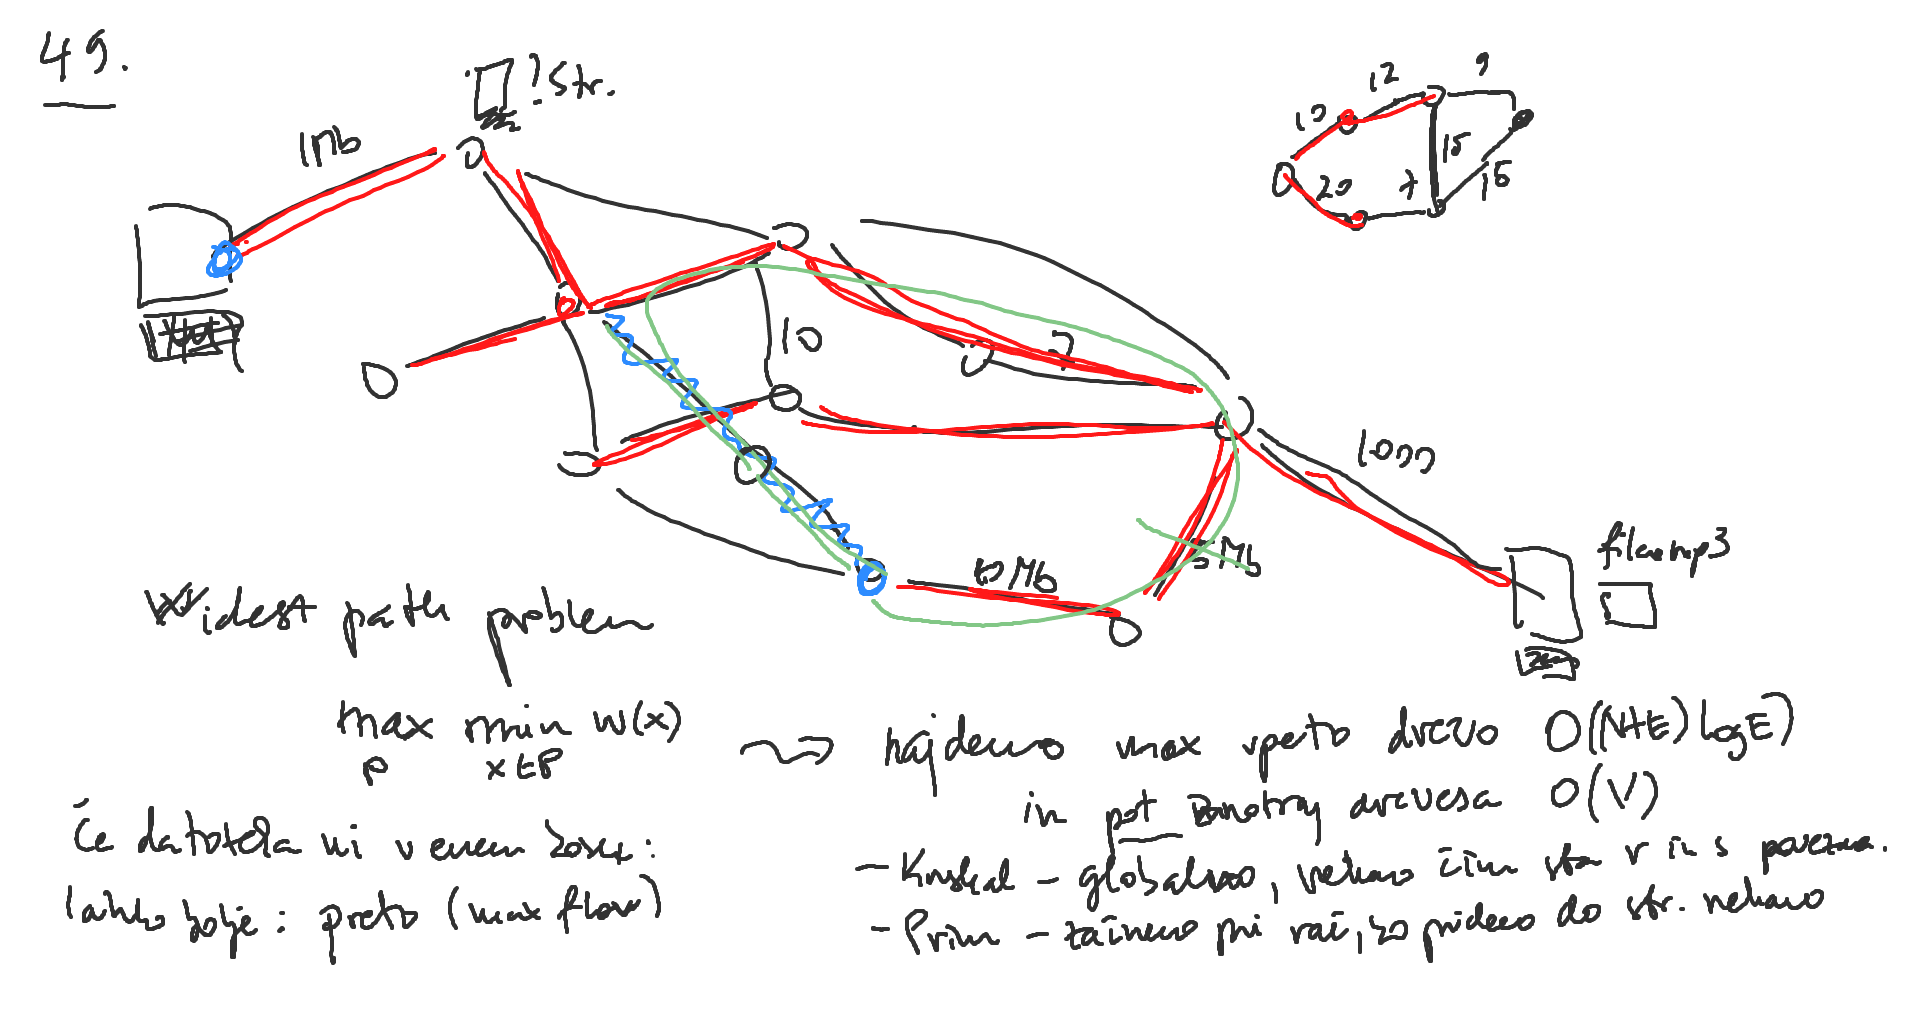 49.
! Str.
1Mb
12
9
10
15
20
7
16
10
7
1000
5 Mb
10 Mb
file.mp3
Widest path problem
max min w(x)
P x∈P
najdemo max vpeto drevo O((N+E) log E)
in pot znotraj drevesa O(V)
Če datoteka ni v enem kosu:
lahko bolje: pretok (max flow)
- Kruskal - globalno, nehamo čim sta r in s povezana.
- Prim - začnemo pri rač, ko pridemo do str. nehamo